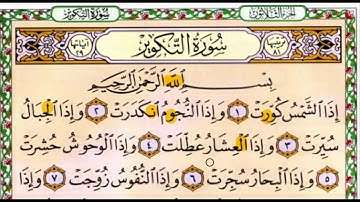 سُورَةُ التَّكْوِيرِ
سُورَةُ التَّكْوِيرِ
آيَاتُهَا ٢٩
بِسْمِ اللَّهِ الرَّحْمَٰنِ الرَّحِيمِ
إِذَا الشَّمْسُ كُوِّرَتْ ١ وَإِذَا النُّجُومُ انكَدَرَتْ ٢ وَإِذَا الْجِبَالُ
سُيِّرَتْ ٣ وَإِذَا الْعِشَارُ عُطِّلَتْ ٤ وَإِذَا الْوُحُوشُ حُشِرَتْ
٥ وَإِذَا الْبِحَارُ سُجِّرَتْ ٦ وَإِذَا النُّفُوسُ زُوِّجَتْ ٧ وَإِذَا